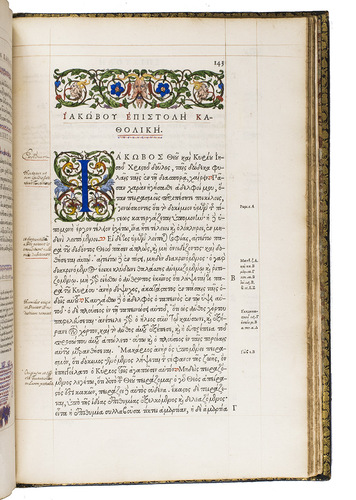 145
ΙΑΚΩΒΟΥ ΕΠΙΣΤΟΛΗ ΚΑ-
ΘΟΛΙΚΗ.
ΙΑΚΩΒΟΣ Θεοῦ καὶ Κυρίου Ἰη-
σοῦ Χριστοῦ δοῦλος, ταῖς δώδεκα φυ-
λαῖς ταῖς ἐν τῇ διασπορᾷ, χαίρειν. πᾶ-
σαν χαρὰν ἡγήσασθε ἀδελφοί μου, ὅ-
ταν πειρασμοῖς περιπέσητε ποικίλοις,
γινώσκοντες ὅτι τὸ δοκίμιον ὑμῶν τῆς πί-
στεως κατεργάζεται ὑπομονήν· ἡ δὲ
ὑπομονὴ ἔργον τέλειον ἐχέτω, ἵνα ἦτε τέλειοι καὶ ὁλόκληροι, ἐν μη-
δενὶ λειπόμενοι. Εἰ δέ τις ὑμῶν λείπεται σοφίας, αἰτείτω πα-
ρὰ τοῦ διδόντος Θεοῦ πᾶσιν ἁπλῶς, καὶ μὴ ὀνειδίζοντος· καὶ δο-
θήσεται αὐτῷ. αἰτείτω δὲ ἐν πίστει, μηδὲν διακρινόμενος· ὁ γὰρ
διακρινόμενος ἔοικε κλύδωνι θαλάσσης ἀνεμιζομένῳ καὶ ῥι-
πιζομένῳ. μὴ γὰρ οἰέσθω ὁ ἄνθρωπος ἐκεῖνος ὅτι λήψεταί τι πα-
ρὰ τοῦ Κυρίου. ἀνὴρ δίψυχος, ἀκατάστατος ἐν πάσαις ταῖς ὁ- Β
δοῖς αὑτοῦ. Καυχάσθω δὲ ὁ ἀδελφὸς ὁ ταπεινὸς ἐν τῷ ὕψει αὑ-
τοῦ· ὁ δὲ πλούσιος ἐν τῇ ταπεινώσει αὑτοῦ, ὅτι ὡς ἄνθος χόρτου
παρελεύσεται. ἀνέτειλε γὰρ ὁ ἥλιος σὺν τῷ καύσωνι, καὶ ἐξήρα-
νε τὸν χόρτον, καὶ τὸ ἄνθος αὐτοῦ ἐξέπεσε, καὶ ἡ εὐπρέπεια τοῦ
προσώπου αὐτοῦ ἀπώλετο· οὕτω καὶ ὁ πλούσιος ἐν ταῖς πορείαις
αὑτοῦ μαρανθήσεται. Μακάριος ἀνὴρ ὃς ὑπομένει πειρασμόν·
ὅτι δόκιμος γενόμενος λήψεται τὸν στέφανον τῆς ζωῆς, ὃν
ἐπηγγείλατο ὁ Κύριος τοῖς ἀγαπῶσιν αὐτόν. Μηδεὶς πειραζό-
μενος λεγέτω, ὅτι ἀπὸ τοῦ Θεοῦ πειράζομαι· ὁ γὰρ Θεὸς ἀπείρα-
στός ἐστι κακῶν, πειράζει δὲ αὐτὸς οὐδένα. ἕκαστος δὲ πειράζε-
ται, ὑπὸ τῆς ἰδίας ἐπιθυμίας ἐξελκόμενος καὶ δελεαζόμενος.
εἶτα ἡ ἐπιθυμία συλλαβοῦσα τίκτει ἁμαρτίαν, ἡ δὲ ἁμαρτία Γ